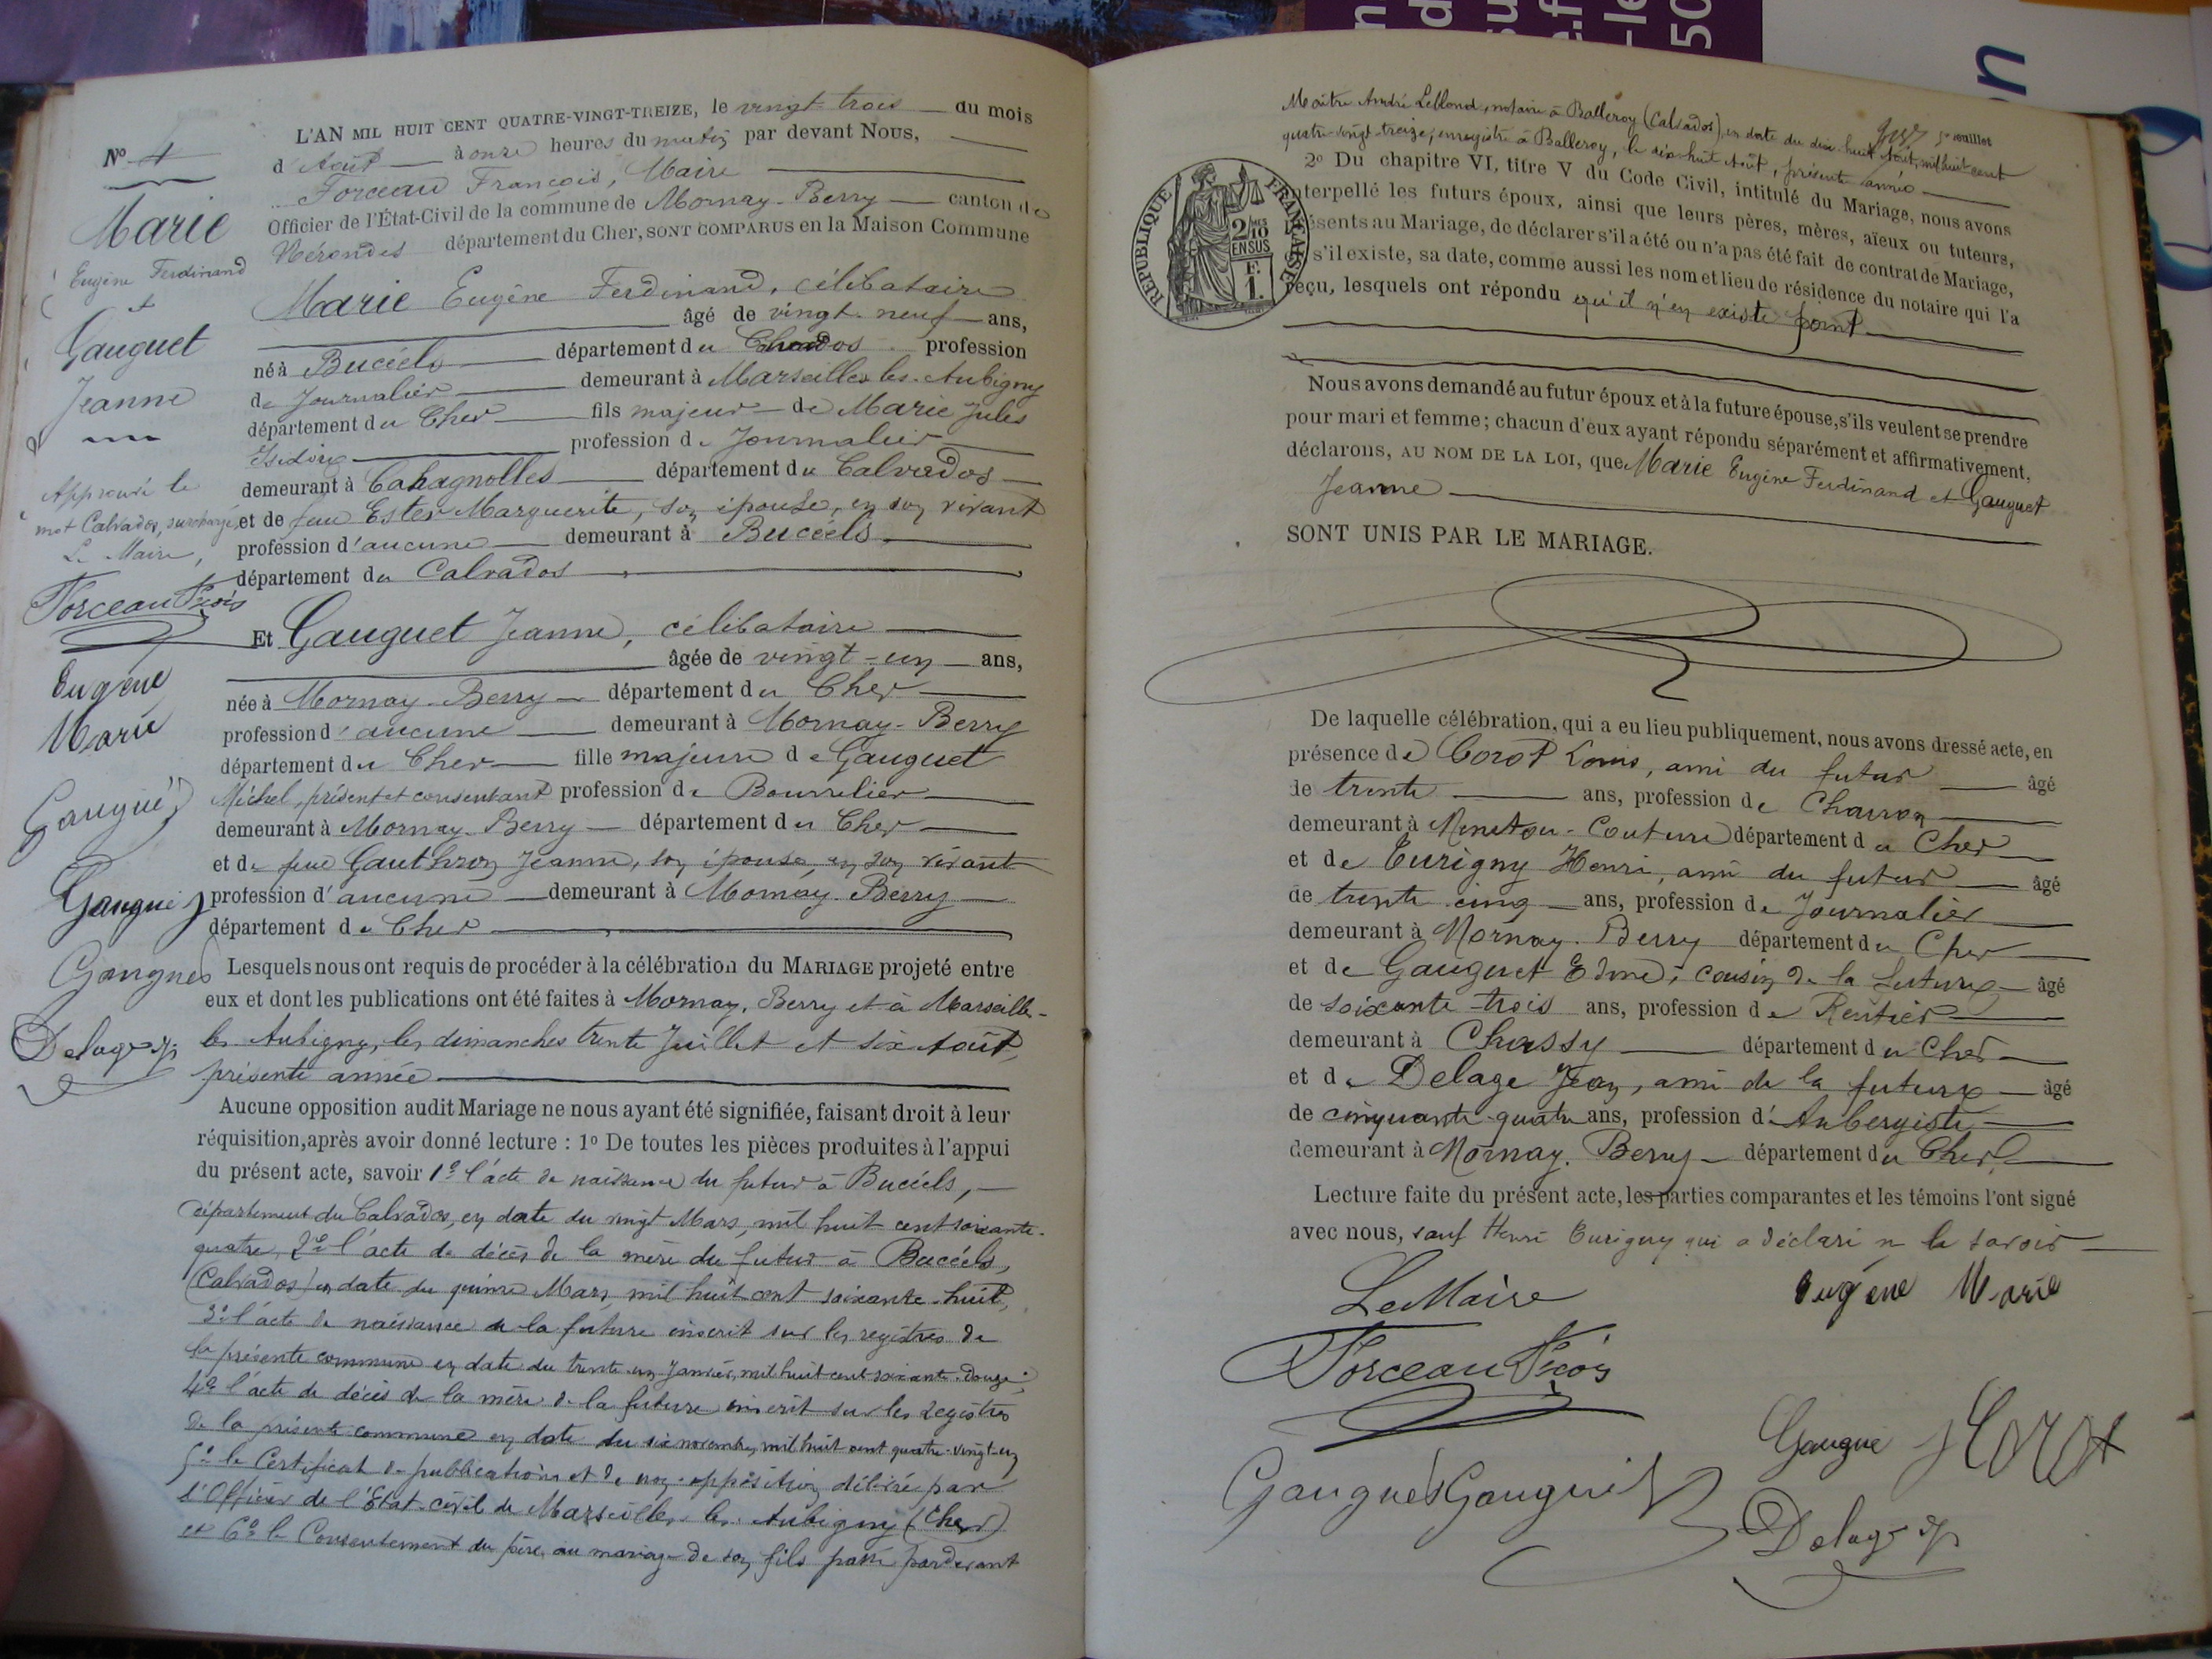 Nº 4
Marie
Eugène Ferdinand
et
Gauguet
Jeanne
Approuvé le
mot Calvados, surchargé,
Le Maire,
Torceau Fcois
Eugène
Marie
Gaugué
Gaugué
Gaugues
Delage J
L'AN MIL HUIT CENT QUATRE-VINGT-TREIZE, le vingt trois du mois
d'Août à onze heures du matin par devant Nous,
Torceau François, Maire
Officier de l'État-Civil de la commune de Mornay-Berry canton de
Nérondes département du Cher, SONT COMPARUS en la Maison Commune
Marie Eugène Ferdinand, célibataire
âgé de vingt-neuf ans,
né à Bucéels département du Calvados profession
de Journalier demeurant à Marseilles-les-Aubigny
département du Cher fils majeur de Marie Jules
Isidore profession de Journalier
demeurant à Cahagnolles département du Calvados
et de feue Ester Marguerite, son épouse, en son vivant
profession d'aucune demeurant à Bucéels
département du Calvados
Et Gauguet Jeanne, célibataire
âgée de vingt-un ans,
née à Mornay-Berry département du Cher
profession d'aucune demeurant à Mornay-Berry
département du Cher fille majeure de Gauguet
Michel, présent et consentant profession de Bourrelier
demeurant à Mornay-Berry département du Cher
et de feue Gauthron Jeanne, son épouse, en son vivant
profession d'aucune demeurant à Mornay-Berry
département du Cher
Lesquels nous ont requis de procéder à la célébration du MARIAGE projeté entre
eux et dont les publications ont été faites à Mornay-Berry et à Marseilles-
les Aubigny, les dimanches trente Juillet et six Août,
présente année
Aucune opposition audit Mariage ne nous ayant été signifiée, faisant droit à leur
réquisition, après avoir donné lecture : 1º De toutes les pièces produites à l'appui
du présent acte, savoir 1º l'acte de naissance du futur à Bucéels,
département du Calvados, en date du vingt Mars, mil huit cent soixante-
quatre, 2º l'acte de décès de la mère du futur à Bucéels,
(Calvados) en date du quinze Mars, mil huit cent soixante-huit,
3º l'acte de naissance de la future inscrit sur les registres de
la présente commune en date du trente-un Janvier, mil huit cent soixante-douze;
4º l'acte de décès de la mère de la future inscrit sur les registres
de la présente commune en date du six novembre, mil huit cent quatre-vingt-un
5º le Certificat de publications et de non-opposition délivré par
l'Officier de l'État-civil de Marseilles-les-Aubigny (Cher)
et 6º le Consentement du père au mariage de son fils passé pardevant
5e feuillet
Maître André Leblond, notaire à Balleroy (Calvados), en date du dix-huit Août, mil huit cent
quatre-vingt-treize, enregistré à Balleroy, le dix-huit Août, présente année
2º Du chapitre VI, titre V du Code Civil, intitulé du Mariage, nous avons
interpellé les futurs époux, ainsi que leurs pères, mères, aïeux ou tuteurs,
présents au Mariage, de déclarer s'il a été ou n'a pas été fait de contrat de Mariage,
s'il existe, sa date, comme aussi les nom et lieu de résidence du notaire qui l'a
reçu, lesquels ont répondu qu'il n'en existe point
RÉPUBLIQUE FRANÇAISE
2/10 MES
EN SUS
F.
1.
Nous avons demandé au futur époux et à la future épouse, s'ils veulent se prendre
pour mari et femme; chacun d'eux ayant répondu séparément et affirmativement,
déclarons, AU NOM DE LA LOI, que Marie Eugène Ferdinand et Gauguet
Jeanne
SONT UNIS PAR LE MARIAGE.
De laquelle célébration, qui a eu lieu publiquement, nous avons dressé acte, en
présence de Corot Louis, ami du futur âgé
de trente ans, profession de Charron
demeurant à Menetou-Couture département du Cher
et de Eurigny Henri, ami du futur âgé
de trente cinq ans, profession de Journalier
demeurant à Mornay-Berry département du Cher
et de Gauguet Edme, cousin de la future âgé
de soixante-trois ans, profession de Rentier
demeurant à Chassy département du Cher
et de Delage Jean, ami de la future âgé
de cinquante-quatre ans, profession d'Aubergiste
demeurant à Mornay-Berry département du Cher
Lecture faite du présent acte, les parties comparantes et les témoins l'ont signé
avec nous, sauf Henri Eurigny qui a déclaré ne le savoir
Le Maire
Eugène Marie
Torceau Fcois
Gaugue
Corot
Gaugués
Gaugué
Delage J